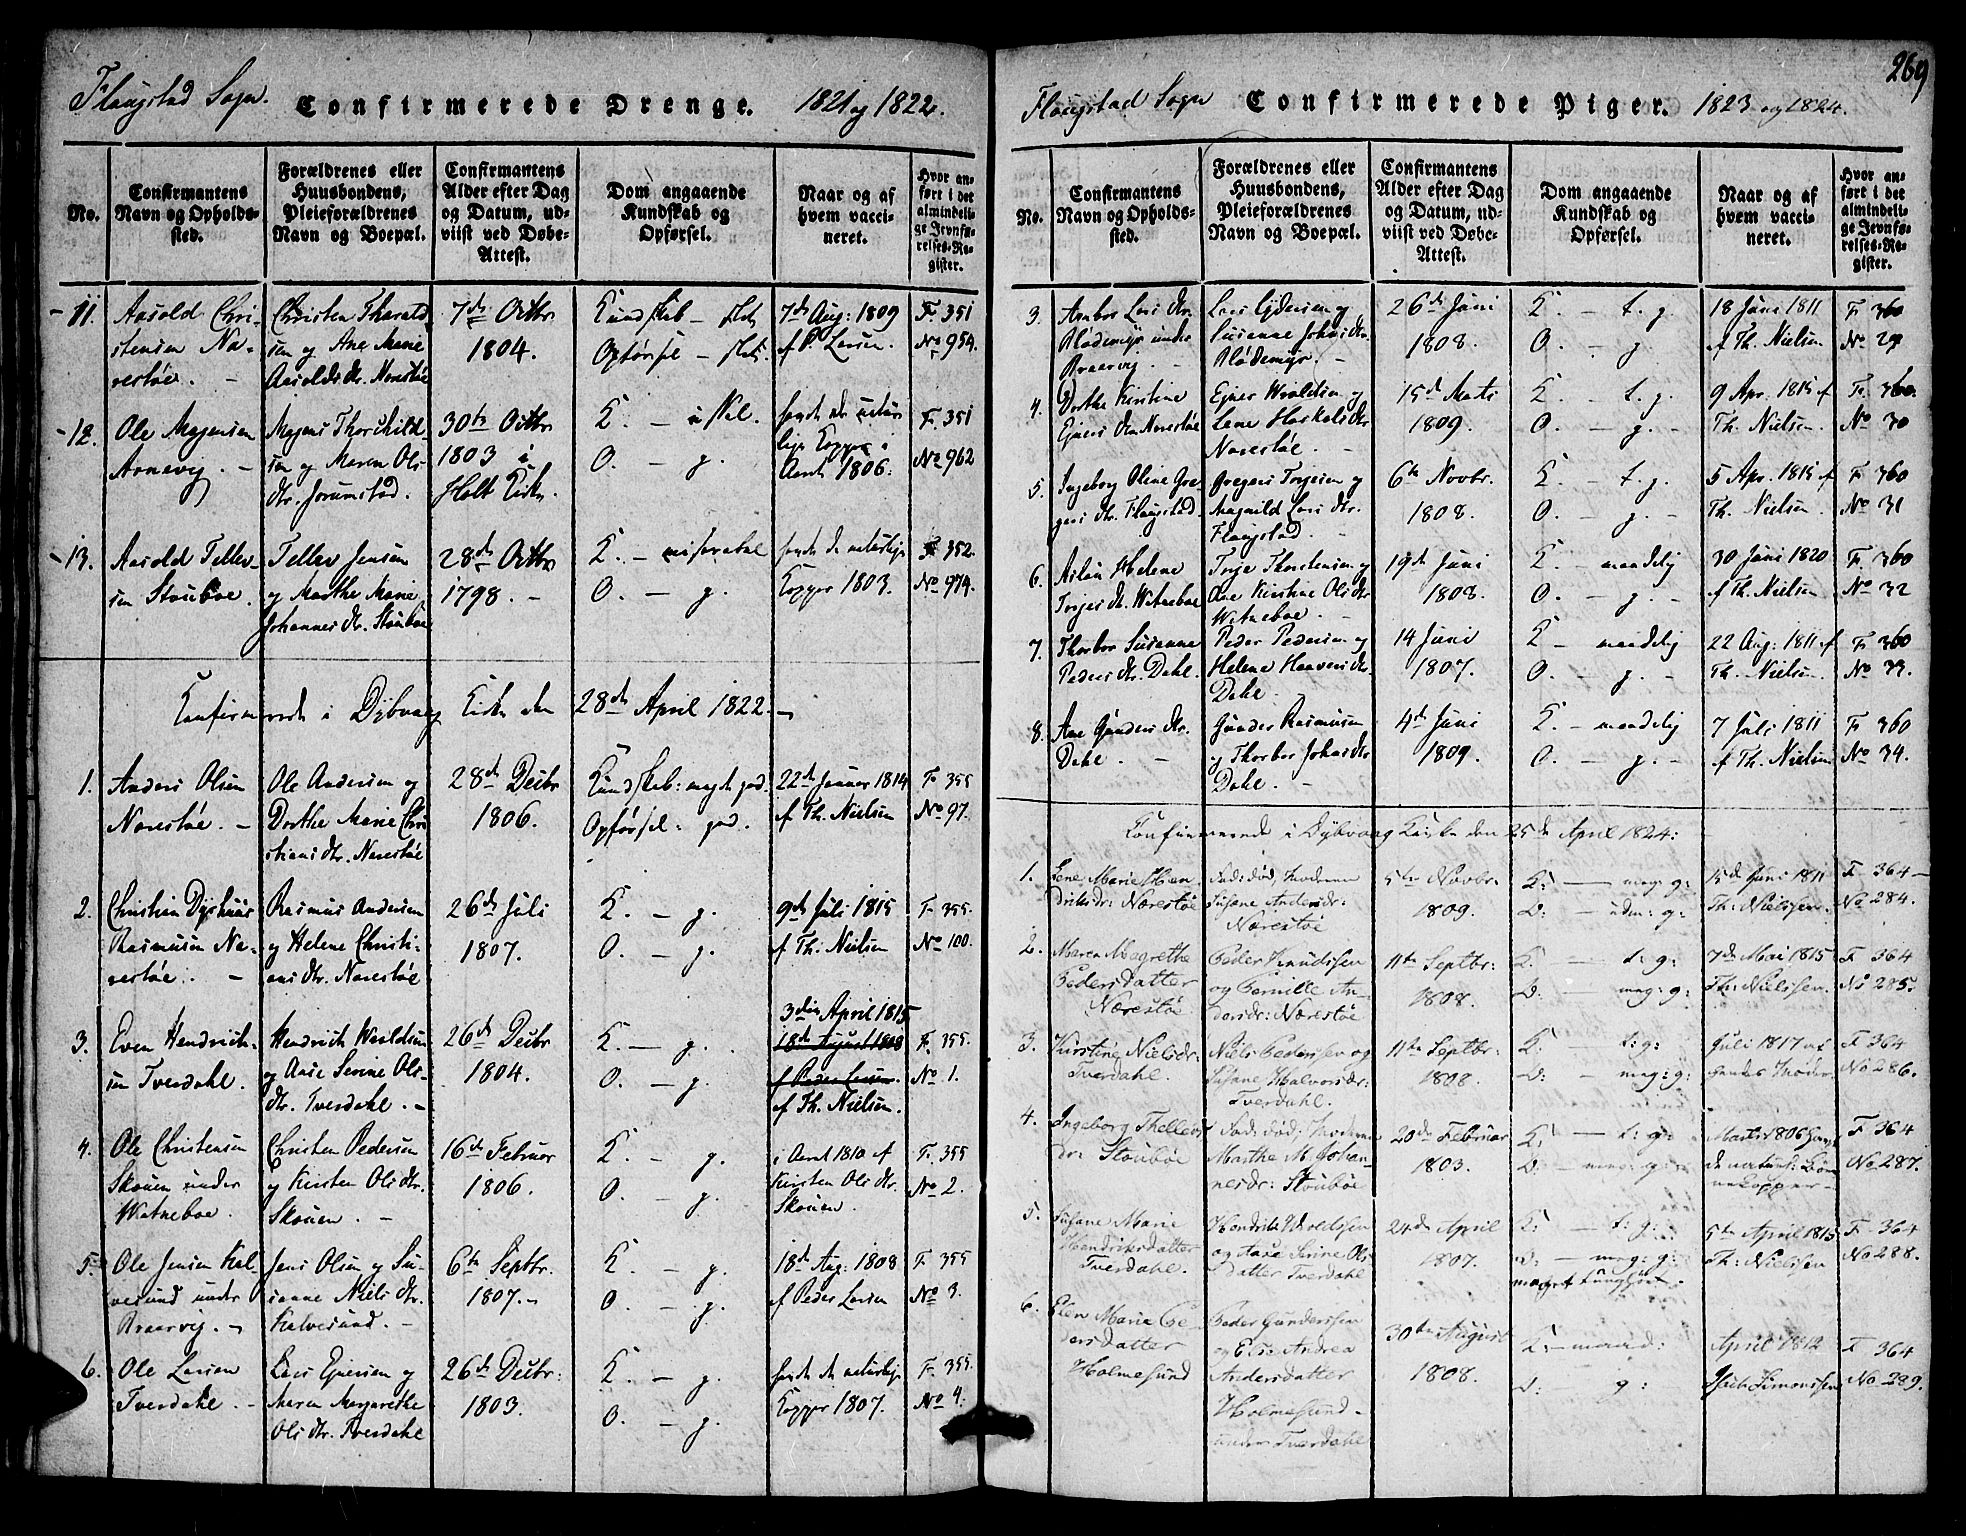 Flangstad Sogn. Confirmerede Drenge. 1821 og 1822.
No.
Confirmantens
Navn og Opholds-
sted.
Forældrenes eller
Huusbondens,
Pleieforældrenes
Navn og Boepæl.
Confirmantens
Alder efter Dag
og Datum, ud-
viist ved Døbe-
Attest.
Dom angaaende
Kundskab og
Opførsel.
Naar og af
hvem vacci-
neret.
Hvor an-
ført i det
almindeli-
ge Jevnfø-
relses-Re-
gister.
11.
Aasold Chri-
stensen Na-
restøe.
Christen Tharald
sen og Ane Marie
Aasolds dr. Narestøe
7de Octbr
1804.
Kundskab - slet
Opførsel - slet.
7de Aug: 1809
af P. Larsen.
F. 351
No 954.
12.
Ole Mogensen
Arnevig.
Mogens Thorchild-
sen og Maren Ols
dr. Jorunstad.
30te Octbr
1803 i
Holt Kirke.
K. -
O. - g.
havt de natur
lige Kopper i
Aaret 1806.
F. 351
No 962
13.
Aasold Tellev-
sen Stoubøe.
Tellev Jensen
og Marthe Marie
Johannes dr. Stoubøe
28de Octbr
1798.
K. - miserabel
O. - g.
havt de naturlige
Kopper 1803.
F. 352.
No 974.
Confirmerede i Dybvaag Kirke den 28de April 1822.
1.
Anders Olsen
Narestøe.
Ole Andersen og
Dorthe Marie Chri
stians dr. Narestøe
28de Decbr
1806.
Kundskab: meget god.
Opførsel: god.
22de Januar 1814
af Th. Nielsen
F. 355
No 97.
2.
Christian
Rasmusen Na-
restøe.
Rasmus Andersen
og Helene Christi-
ans dr. Narestøe
26de Juli
1807.
K. - g.
O. - g.
9de Juli 1815
af Th: Nielsen
F. 355.
No 100.
3.
Even Hendrich-
sen Tverdahl.
Hendrich Wraldsen
og Aase Serine Ols-
dr. Tverdahl.
26de Decbr
1804.
K. - g.
O. - g.
3die April 1815
18de August 1808
af Peder Larsen.
af Th. Nielsen.
F. 355.
No 1.
4.
Ole Christensen
Skouen under
Watneboe.
Christen Pedersen
og Kirsten Ols dr.
Skouen.
16de Februar
1806.
K. - g.
O. - g.
i Aaret 1810 af
Kirsten Ols dr.
Skouen.
F. 355
No 2.
5.
Ole Jensen Kal-
vesund under
Braarvig.
Jens Olsen og Su-
sanne Niels dr.
Kalvesund.
6te Septbr.
1807.
K. - g.
O. - g.
18de Aug: 1808
af Peder Larsen
F. 355
No 3.
6.
Ole Larsen
Tverdahl.
Lars Ejersen og
Maren Margarethe
Ols dr. Tverdahl
26de Decbr:
1803.
K. - g.
O. - g.
havt de naturlige
Kopper 1807.
F. 355.
No 4.
269
Flangstad Sogn Confirmerede Piger. 1823 og 1824.
No.
Confirmantens
Navn og Opholds-
sted.
Forældrenes eller
Huusbondens,
Pleieforældrenes
Navn og Boepæl.
Confirmantens
Alder efter Dag
og Datum, ud-
viist ved Døbe-
Attest.
Dom angaaende
Kundskab og
Opførsel.
Naar og af
hvem vacci-
neret.
Hvor an-
ført i det
almindeli-
ge Jevnfø-
relses-Re-
gister.
3.
Anbor Lars dr.
Blødemyr under
Braarvig.
Lars Ejersen og
Susanne Johas dr.
Blødemyr.
26de Juni
1808.
K. - t. g.
O. - g.
18 Juni 1811
af Th. Nielsen
F. 360
No 29
4.
Dorthe Kirstine
Ejers dr. Narestøe
Ejner Wraldsen og
Lene Haskols dr.
Narestøe.
15de Mats
1809.
K. - t. g.
O. - g.
9 Apr. 1815 af
Th. Nielsen.
F. 360.
No 30
5.
Ingeborg Oline Gre-
gers dr. Flangstad.
Gregers Torjesen og
Magnild Lars dr.
Flangstad.
6te Novbr.
1808.
K. - t. g.
O. - g.
5 Apr. 1815 af
Th. Nielsen.
F. 360
No 31
6.
Aslau Helene
Torjes dr. Watneboe
Torje Thorstensen og
Ane Kirstine Ols dr.
Watneboe.
19de Juni
1808.
K. - maadelig
O. - g.
30 Juni 1820
af Th. Nielsen
F. 360
No 32
7.
Thorbor Susanne
Peders dr. Dahl.
Peder Pedersen og
Helene Haavors dr.
Dahl.
14 Juni
1807.
K. - maadelig
O. - g.
22 Aug: 1811 af
Th. Nielsen.
F. 360
No 33.
8.
Ane Gunders dr.
Dahl.
Gunder Rasmusen
og Thorbor Johas dr.
Dahl.
4de Juni
1809.
K. - maadelig
O. - g.
7 Juli 1811
af Th. Nielsen
F. 360
No 34.
Confirmerede i Dybvaag Kirke den 25de April 1824:
1.
Lene Marie Hen
driksdr: Nærestøe
Fad: død, Moderen
Susane Andersdr:
Nærestøe
5te Novbr:
1809.
K: - meg: g:
O: - udm: g:
15de Juni 1811
Th: Nielssen.
F 364
No 284.
2.
Maren Magrethe
Pedersdatter
Nærestøe
Peder Knudssen
og Pernille An-
dersdr: Nærestøe
11te Septbr:
1808.
K: - t: g:
O: - meg: g:
7de Mai 1815
Th: Nielssen.
F 364
No 285.
3.
Kirstine Nielsdr:
Tverdahl.
Niels Pederssen og
Susane Halvorsdr:
Tverdahl.
11te Septbr:
1808.
K: t: g:
O: - meg: g:
Juli 1817 af
hendes Moder.
F 364
No 286.
4.
Ingeborg Thellevs
dr: Stoubøe
Fad: død; Moderen
Marthe M. Johan-
nesdr: Stoubøe
20de Februar
1803.
K: - t: g:
O: - meg: g:
Marts 1806 havt
de naturl: Bør
nekopper
F 364
No 287.
5.
Susane Marie
Hendriksdatter
Tverdahl.
Hendrik Wroldssen
og Aase Serine Ols
datter Tverdahl
24de April
1807.
K: - t: g:
O: - meg: g:
5te April 1815
Th: Nielssen
F 364
No 288.
6.
Elen Marie Pe-
dersdatter
Holmesund
Peder Gunderssen
og Else Andrea
Andersdatter
Holmesund
under Tverdahl
30te August
1808.
K: - maad:
O: g:
April 1812
Isak Simonssen
F 364
No 289.